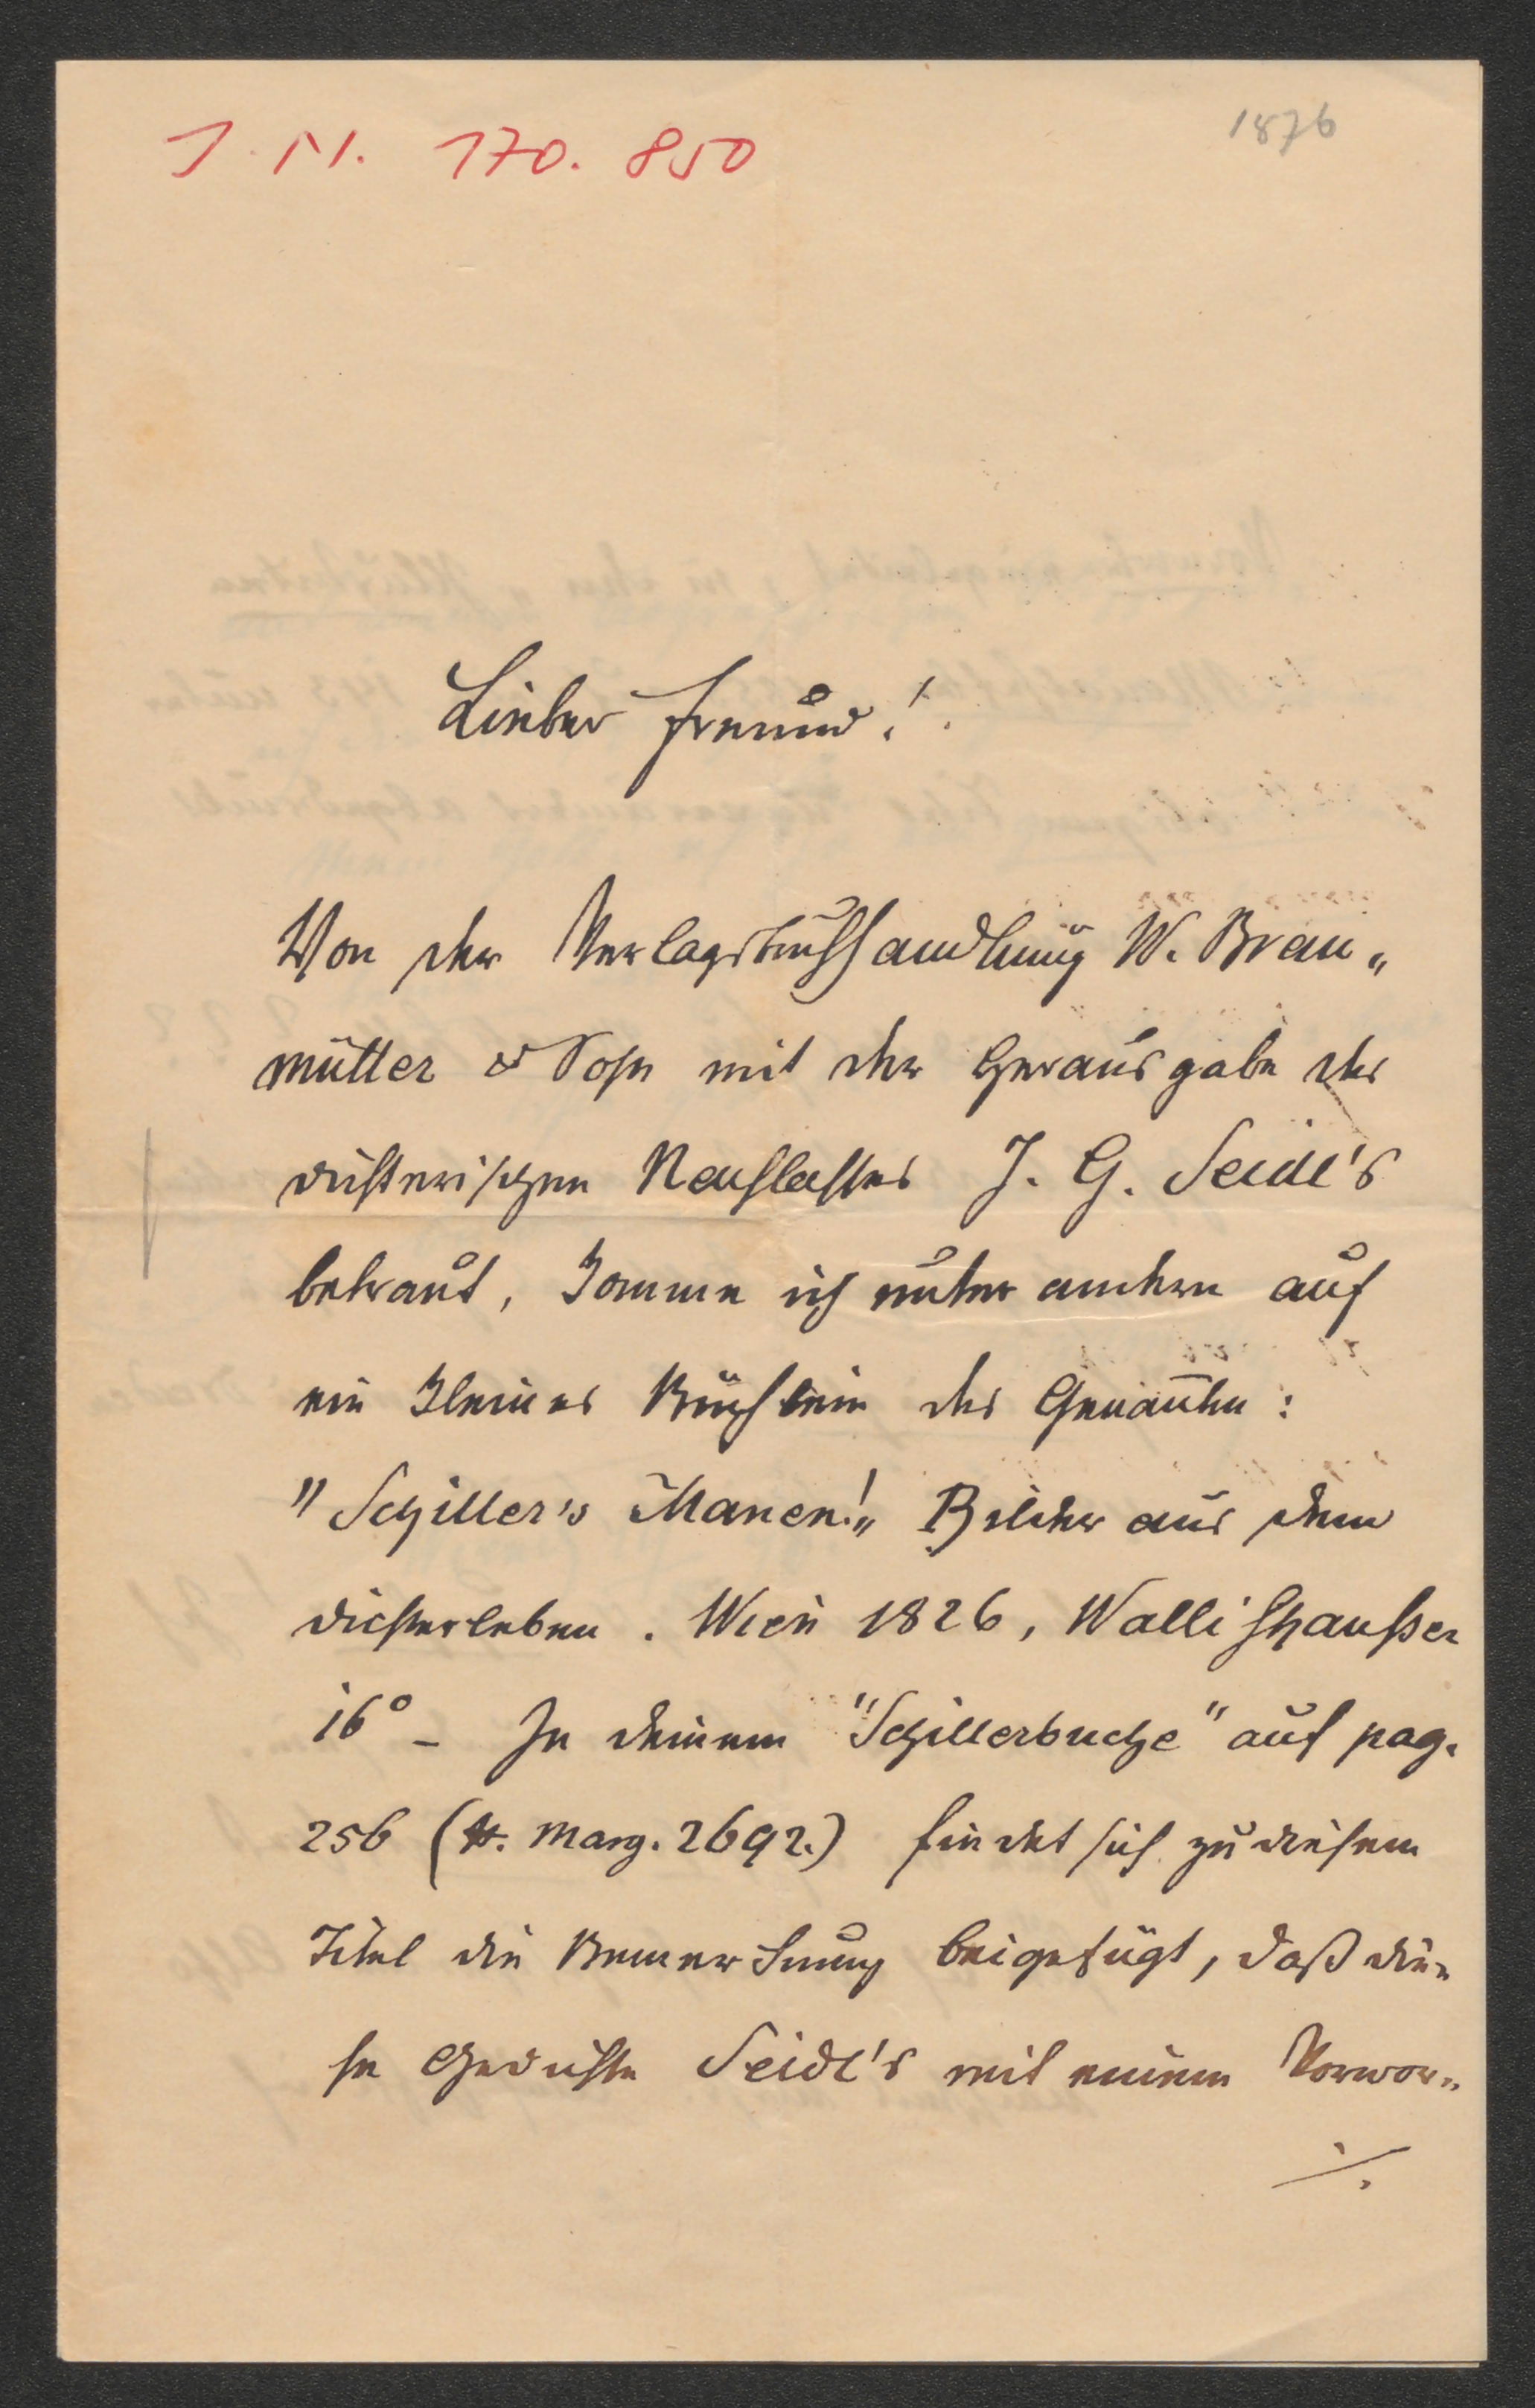 I. N. 170. 850
1876
Lieber Freund!
Von der Verlagsbuchhandlung W. Brau„
müller & Sohn mit der Herausgabe des
dichterischen Nachlasses J. G. Seidl's
betraut, komme ich unter andern auf
ein kleines Büchlein des Genannten:
"Schiller's Manen!„ Bilder aus dem
Dichterleben. Wien 1826, Wallishausser
16° – In deinem "Schillerbuche" auf pag.
256 (N. Marg. 2692.) findet sich zu diesem
Titel die Bemerkung beigefügt, daß die„
se Gedichte Seidl's mit einem Vorwor„
./.